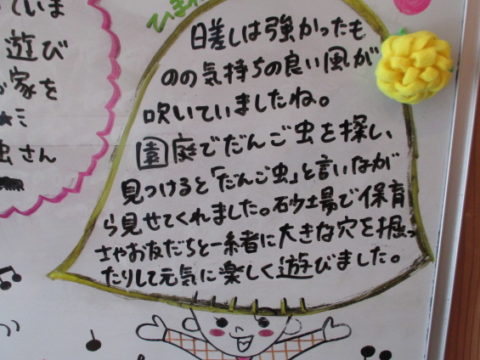 ていま
遊び
家を
虫さん
ひま
日差しは強かったも
のの気持ちの良い風が
吹いていましたね。
園庭でだんご虫を探し、
見つけると「だんご虫」と言いなが
ら見せてくれました。砂場で保育
士やお友だちと一緒に大きな穴を掘っ
たりして元気に楽しく遊びました。